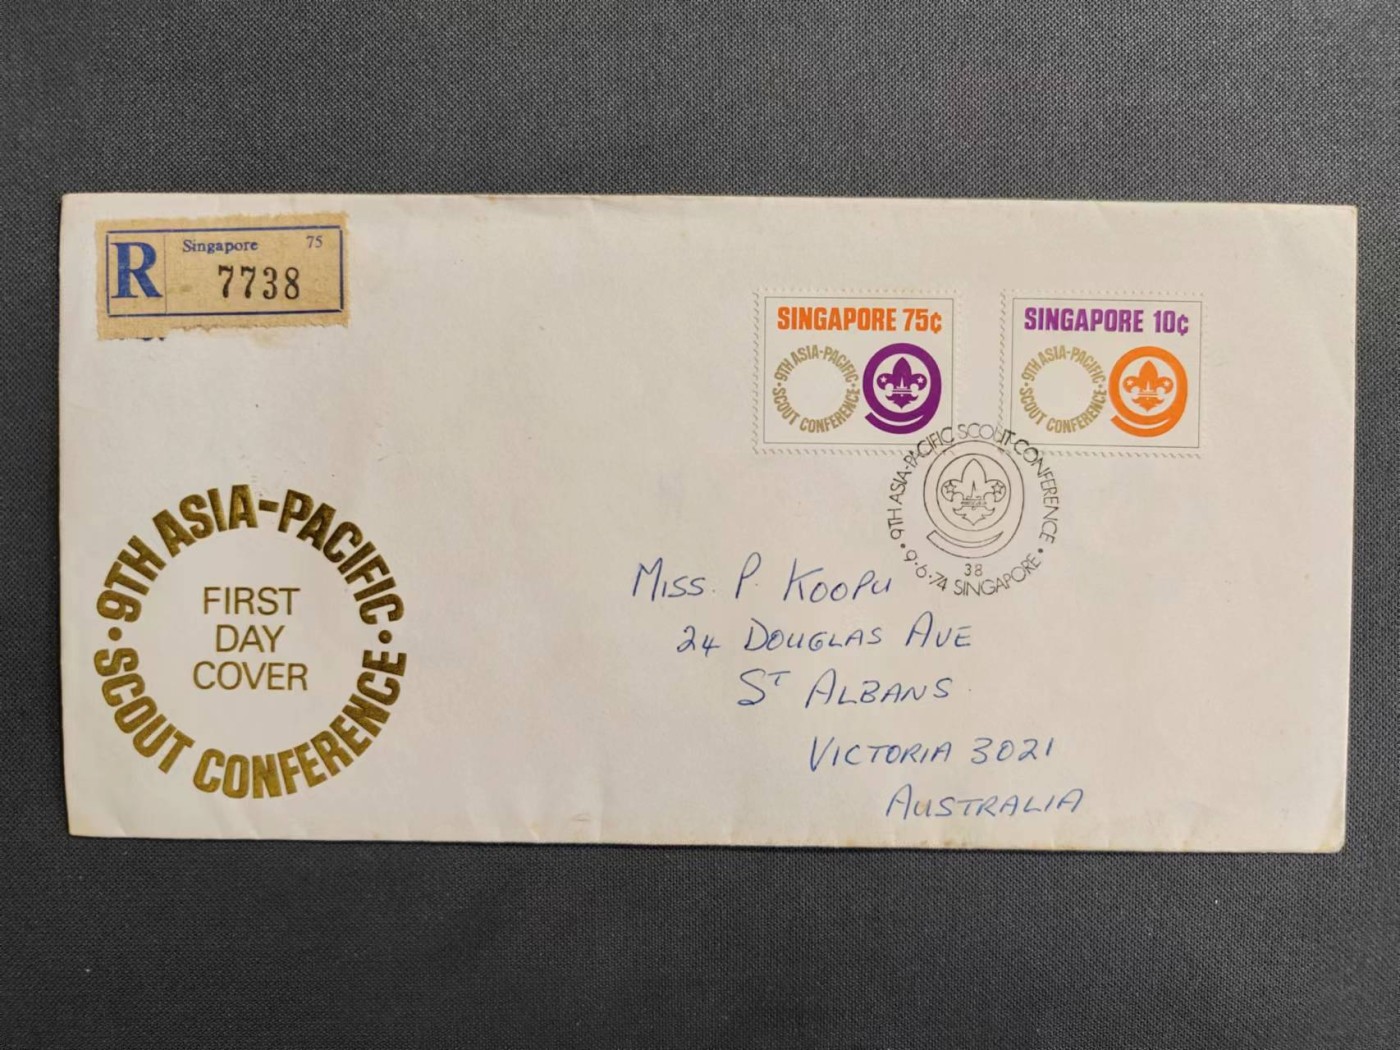 R Singapore 75
7738
SINGAPORE 75¢
• 9TH ASIA-PACIFIC • SCOUT CONFERENCE
SINGAPORE 10¢
• 9TH ASIA-PACIFIC • SCOUT CONFERENCE
• 9TH ASIA-PACIFIC SCOUT CONFERENCE •
38
9·6·74 SINGAPORE
• 9TH ASIA-PACIFIC • SCOUT CONFERENCE
FIRST
DAY
COVER
MISS. P. KOOPU
24 DOUGLAS AVE
ST ALBANS
VICTORIA 3021
AUSTRALIA